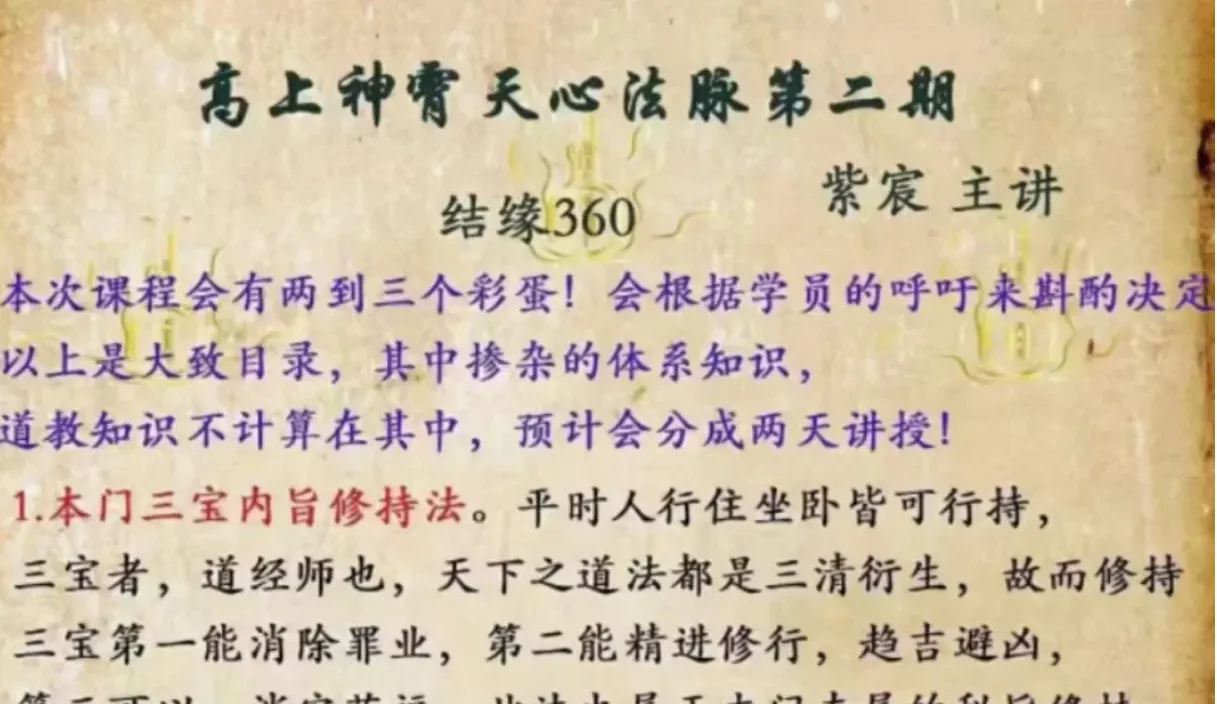 高上神霄天心法脉第二期
紫宸 主讲
结缘360
本次课程会有两到三个彩蛋！会根据学员的呼吁来斟酌决定
以上是大致目录，其中掺杂的体系知识，
道教知识不计算在其中，预计会分成两天讲授！
1.本门三宝内旨修持法。平时人行住坐卧皆可行持，
三宝者，道经师也，天下之道法都是三清衍生，故而修持
三宝第一能消除罪业，第二能精进修行，趋吉避凶，